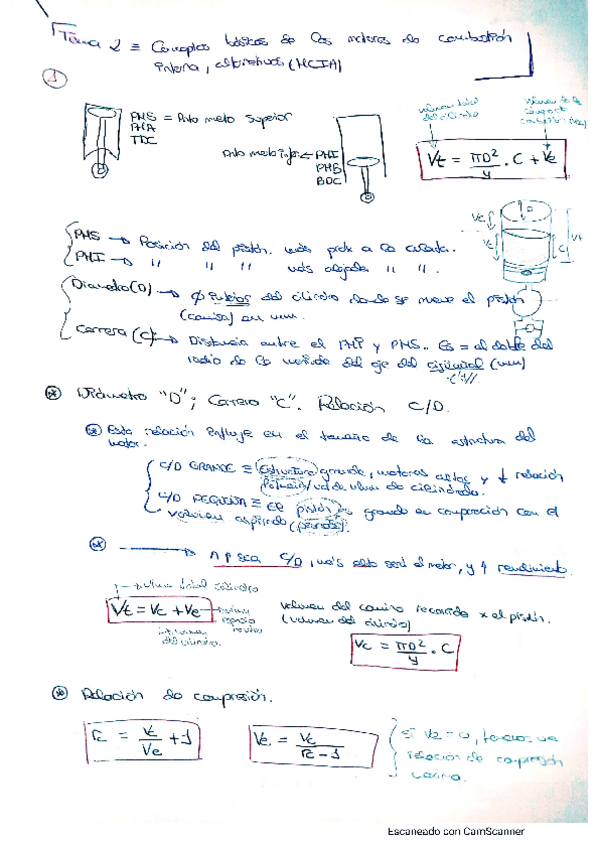 Tema 2 ≡ Conceptos básicos de los motores de combustión
interna, alternativos (MCIA)
1
PMS = Punto muerto Superior
PMA
TDC
Punto muerto Infer ← PMI
PMB
BDC
volumen total del cilindro
volumen de la
combustión (Ve)
Vt = πD²/4 . C + Ve
D
Ve
Vc
C
Vt
PMS → Posición del pistón más próx a la culata.
PMI → " " " más alejada " ".
Diámetro (D) → ϕ del cilindro donde se mueve el pistón
(camisa) en mm.
Carrera (C) → Distancia entre el PMI y PMS. Es = al doble del
radio de la del eje del cigüeñal (mm)
* Diámetro "D"; Carrera "C". Relación C/D.
* Esta relación influye en el tamaño de la estructura del
motor.
C/D GRANDE ≡ Estructura grande, motores altos y ↓ relación
de cilindrada.
C/D PEQUEÑA ≡ El pistón es grande en comparación con el
volumen aspirado
* → A + sea C/D, más alto será el motor, y ↑ rendimiento.
→ volumen total cilindro
Vt = Vc + Ve
volumen del camino recorrido x el pistón.
(volumen del cilindro)
del cilindro.
Vc = πD²/4 . C
* Relación de compresión.
rc = Vc/Ve + 1
Ve = Vc/rc - 1
Si Ve = 0, tenemos una
relación de compresión
Escaneado con CamScanner